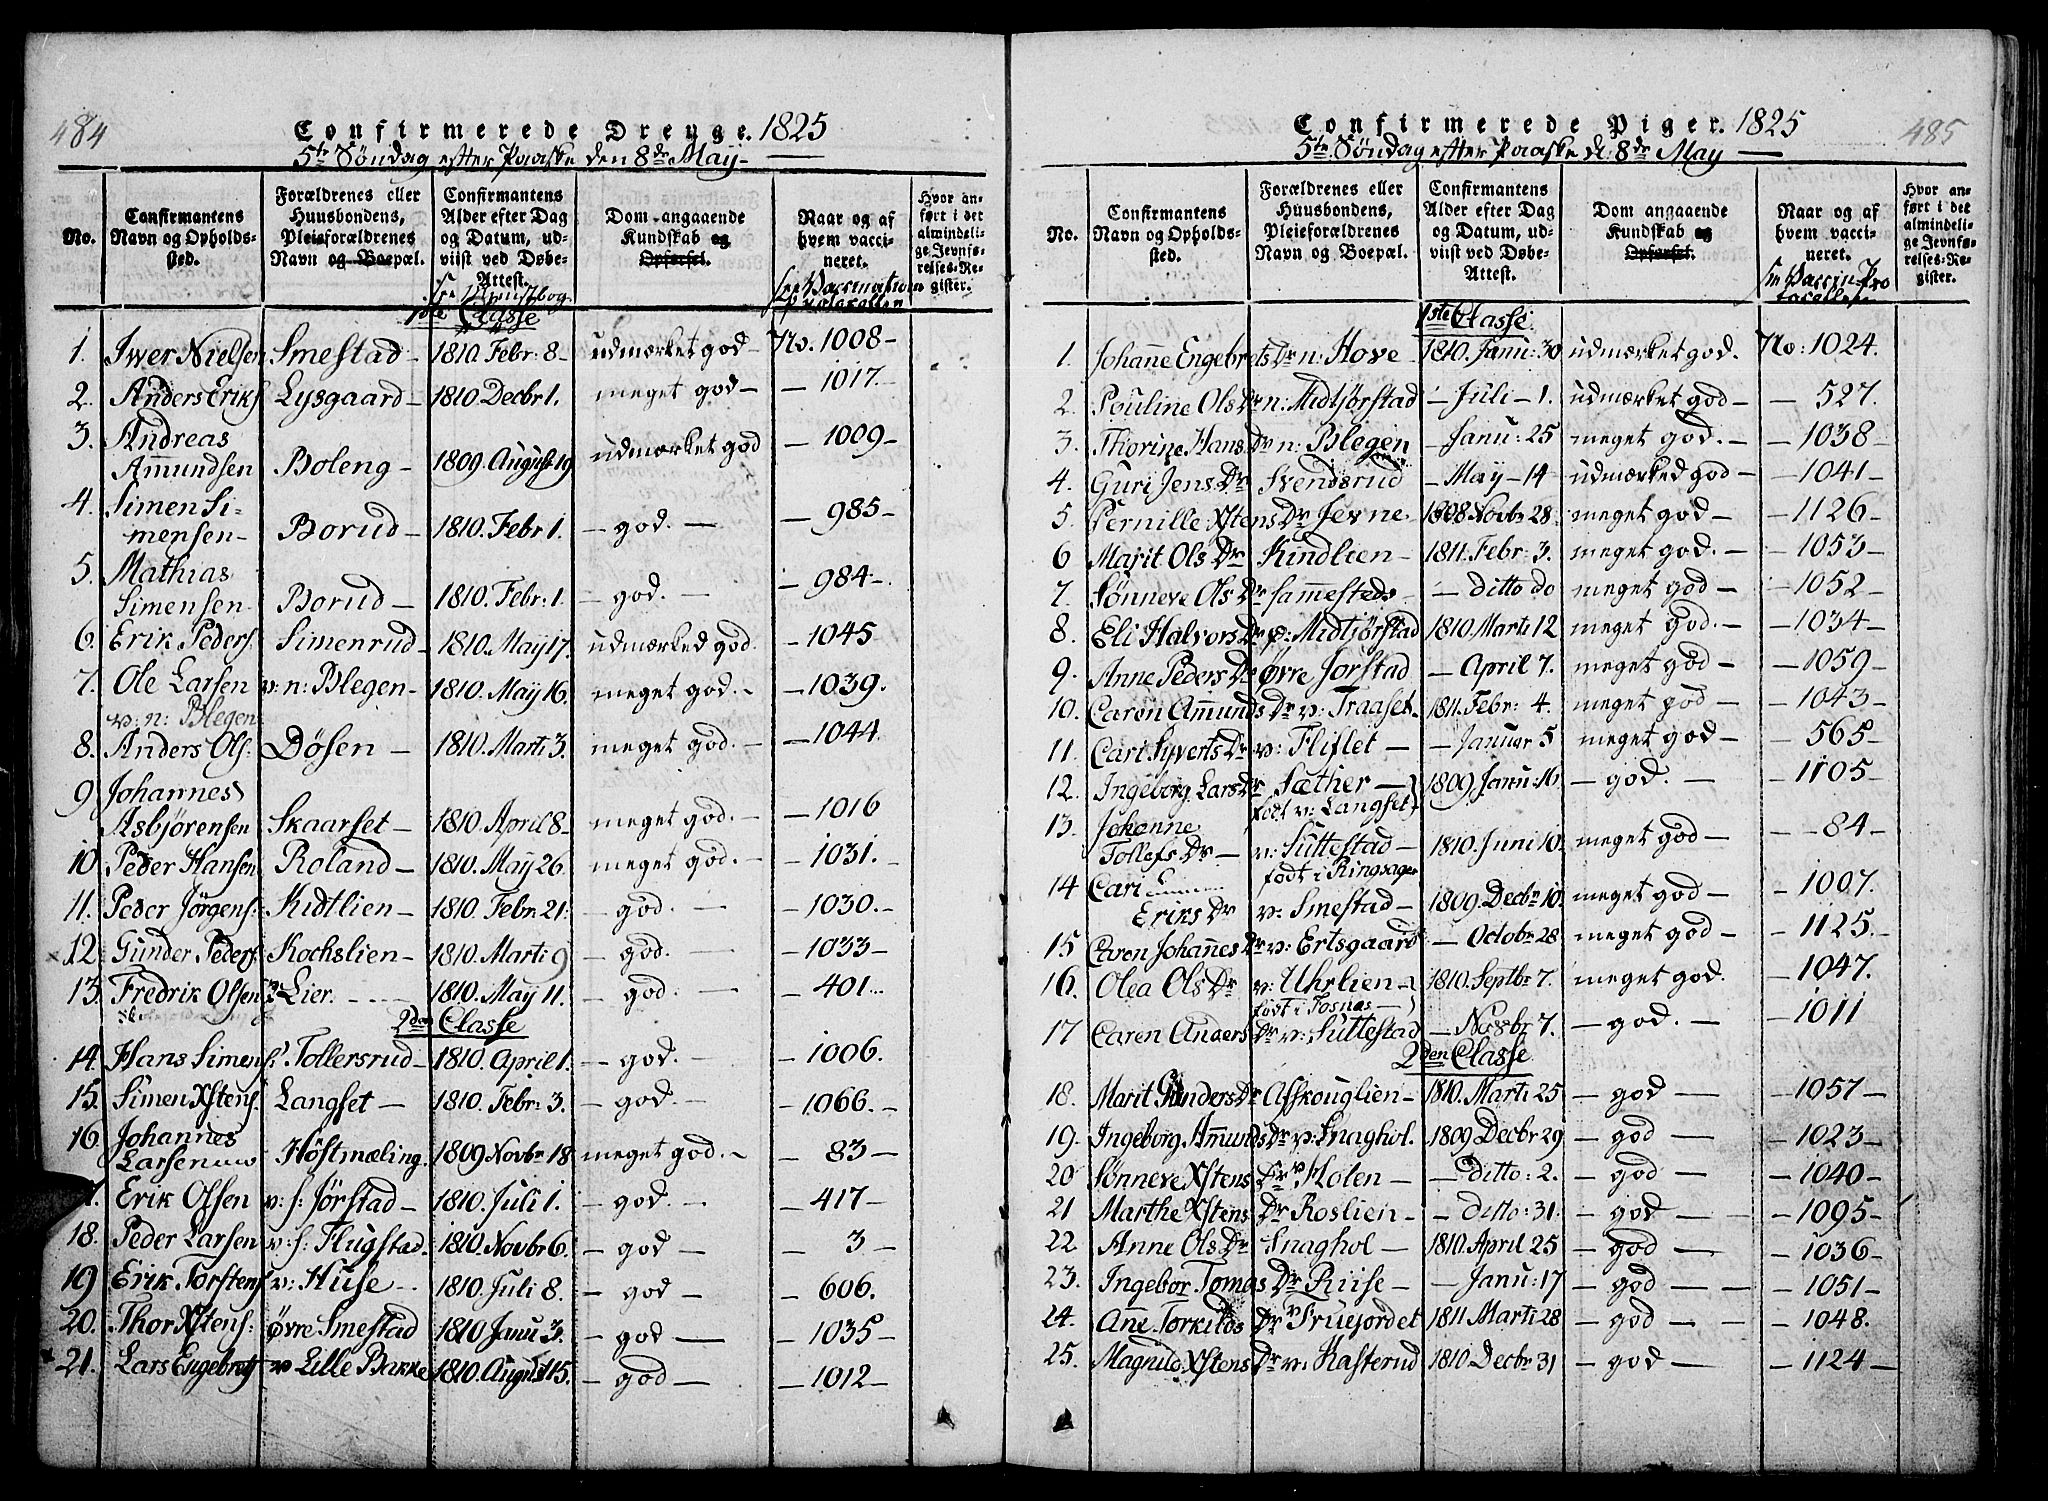 484
Confirmerede Drenge. 1825
5te Søndag efter Paaske den 8de May
No.
Confirmantens Navn og Opholds-sted.
Forældrenes eller Huusbondens, Pleieforældrenes Navn og Boepæl.
Confirmantens Alder efter Dag og Datum, ud-viist ved Døbe-Attest.
Dom angaaende Kundskab og Opførsel.
Naar og af hvem vacci-neret.
Hvor an-ført i det almindeli-ge Jevnfø-relses-Re-gister.
1ste Classe
1. Iwer Nielsen Smestad 1810. Febr: 8 – udmærket god – No. 1008 –
2. Anders Eriks Lysgaard – 1810. Decbr 1. meget god – – 1017. –
3. Andreas
Amundsen Boleng – 1809. August 19 udmærket god – 1009 –
4. Simen Si-
mensen – Borud – 1810. Febr 1. – god. – – 985 –
5. Mathias
Simensen Borud – 1810. Febr: 1. – god. – – 984 –
6. Erik Peders. Simenrud – 1810. May 17. udmærked god. – 1045
7. Ole Larsen v: n: Blegen – 1810. May 16. meget god. – – 1039.
v: n: Blegen
8. Anders Ols: Døsen – 1810. Marti 3. meget god. – – 1044.
9 Johannes
Asbjørensen Skaarset – 1810. April 8 – meget god. – – 1016
10 Peder Hansen Roland – 1810. May 26. meget god. – – 1031. –
11. Peder Jørgens: Kidtlien – 1810. Febr. 21: – god. – – 1030. –
12. Gunder Peders. Kochslien – 1810. Marti 9 – god. – – 1033 –
13. Fredrik Olsen Lier. 1810. May 11. – god. – – 401
2den Classe
14. Hans Simens. Tollersrud – 1810. April 1. – god. – – 1006.
15. Simen Xstens. Langset – 1810. Febr: 3. – god. – – 1066. –
16. Johannes
Larsen Høstmæling. 1809 Novbr 18 meget god. – – 83 –
Erik Olsen v: s: Jørstad – 1810. Juli 1. – god. – – 417 –
18. Peder Larsen v: s: Flugstad. 1810. Novbr 6. – god – – 3 –
19 Erik Torstens v: Huse – 1810. Juli 8. – god – – 606.
20. Thor Xstens: øvre Smestad 1810 Janu 3. – god – – 1035 –
21. Lars Engebrets v Lille Bakke 1810. August 15. – god – – 1012 –
485
Confirmerede Piger. 1825
5te Søndag efter Paaske d: 8de May
No.
Confirmantens Navn og Opholds-sted.
Forældrenes eller Huusbondens, Pleieforældrenes Navn og Boepæl.
Confirmantens Alder efter Dag og Datum, ud-viist ved Døbe-Attest.
Dom angaaende Kundskab og Opførsel.
Naar og af hvem vacci-neret.
Hvor an-ført i det almindeli-ge Jevnfø-relses-Re-gister.
1ste Classe
1. Johanne Engebrets Dr n: Hove – 1810. Janu: 30 udmærket god. No: 1024.
2. Pouline Ols Dr n: Midtjørstad – Juli – 1. udmærket god – – 527.
3. Thorine Hans Dr n: Blegen – Janu: 25 meget god. – – 1038 –
4. Guri Jens Dr Svendsrud – May – 14 udmærked god – – 1041 –
5. Pernille Xstens Dr Jevne – 1808 Novbr 28. meget god – – 1126 –
6 Marit Ols Dr Kindlien – 1811. Febr: 3. meget god. – – 1053 –
7. Sønneve Ols Dr Sammesteds – Ditto do meget god – – 1052 –
8. Eli Halvors Dr p: Midtjørstad 1810. Marti 12 meget god. – – 1034 –
9. Anne Peders Dr Øvre Jorstad – April 7. meget god – – 1059 –
10. Caren Amunds Dr v: Traaset. 1811. Febr: 4. meget god – – 1043 –
11. Cari Syverts Dr v: Fliflet – – Januar 5 meget god – – 565 –
12. Ingeborg Lars Dr Sæther – 1809 Janu: 16 – god. – – 1105 –
født v: Langset
13. Johanne
Tollefs Dr – v: Suttestad – 1810. Juni 10. meget god – – 84 –
født i Ringsager
14 Cari
Eriks Dr v: Smestad – 1809. Decbr 10. meget god – – 1007.
15 Caren Johannes Dr v: Ertsgaard – Octobr 28 meget god – – 1125. –
16. Olea Ols Dr v: Uhrlien – 1810. Septbr 7. meget god. – 1047.
født i Fosnæs –
17 Caren Anders Dr v: Suttestad – Novbr 7. – god. – – 1011
2den Classe
18. Marit Gunders Dr Asskouglien – 1810. Marti 25 – god – – 1057 –
19. Ingeborg Amunds Dr v: Snaghol. 1809 Decbr 29 – god – – 1023 –
20 Sønneve Xstens Dr v Holen – – Ditto: 2. – god – – 1040 –
21 Marthe Xstens Dr Roslien – – Ditto: 31. – god – – 1095 –
22 Anne Ols Dr Snaghol – 1810. April 25 – god – – 1036 –
23. Ingebor Tomas Dr Ruise – – Janu: 17 – god – – 1051 –
24. Anne Torkilds Dr v Truejordet 1811 Marti 28 – god – – 1048.
25. Magnild Xstens Dr v: Kasterud 1810 Decbr 31 – god – – 1124 –